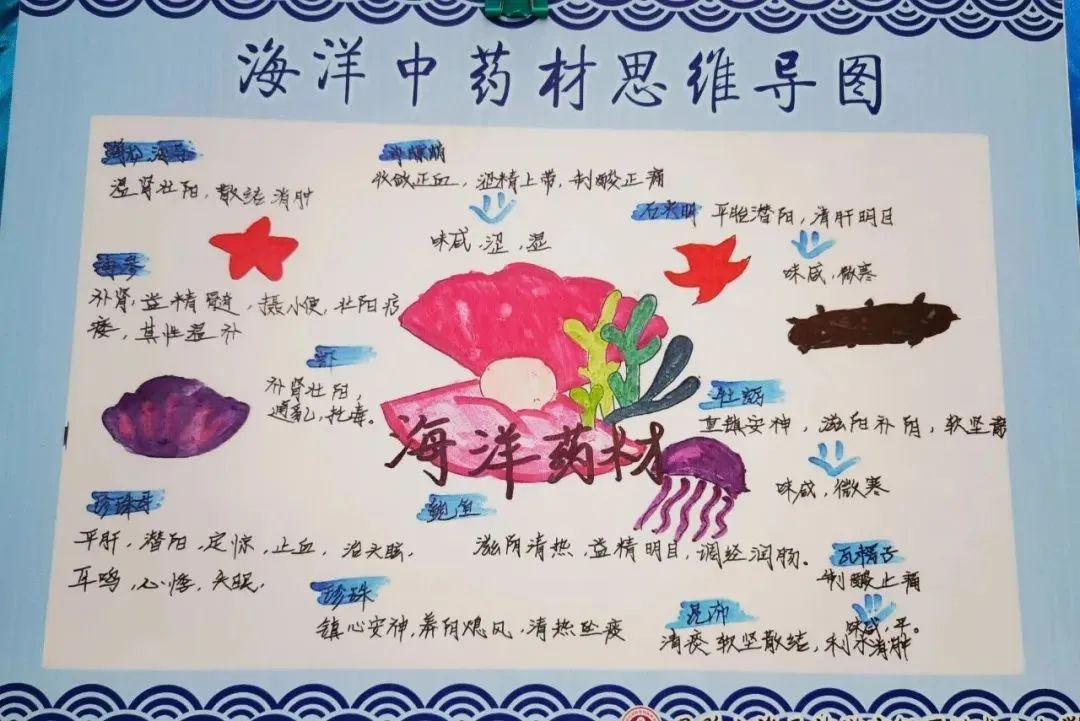 海洋中药材思维导图
海龙海马
温肾壮阳，散结消肿
海螵蛸
收敛止血，涩精止带，制酸止痛
味咸，涩，温
石决明
平肝潜阳，清肝明目
味咸，微寒
海参
补肾，益精髓，摄小便，壮阳疗
痿，其性温补
虾
补肾壮阳，
通乳，托毒。
海洋药材
牡蛎
重镇安神，滋阳补阴，软坚散
味咸，微寒
珍珠母
平肝，潜阳，定惊，止血，治头眩，
耳鸣，心悸，失眠，
鲍鱼
滋阴清热，益精明目，调经润肠。
瓦楞子
制酸止痛
味咸，平。
珍珠
镇心安神，养阴熄风，清热坠痰
昆布
消痰软坚散结，利水消肿